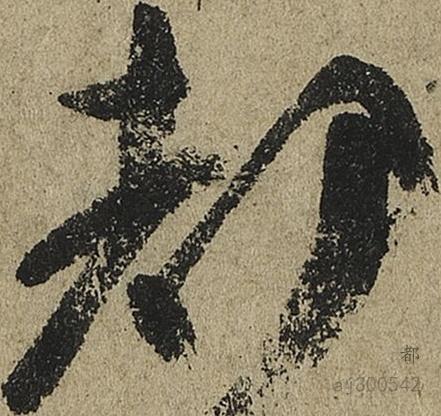 都
都
ag300542